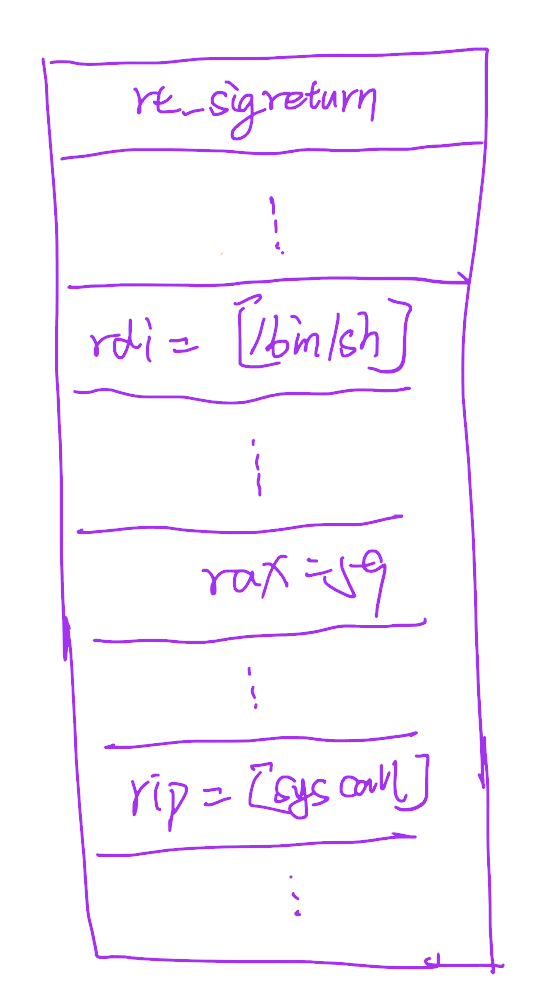 rt_sigreturn
⋮
rdi = [/bin/sh]
⋮
rax = 59
⋮
rip = [syscall]
⋮